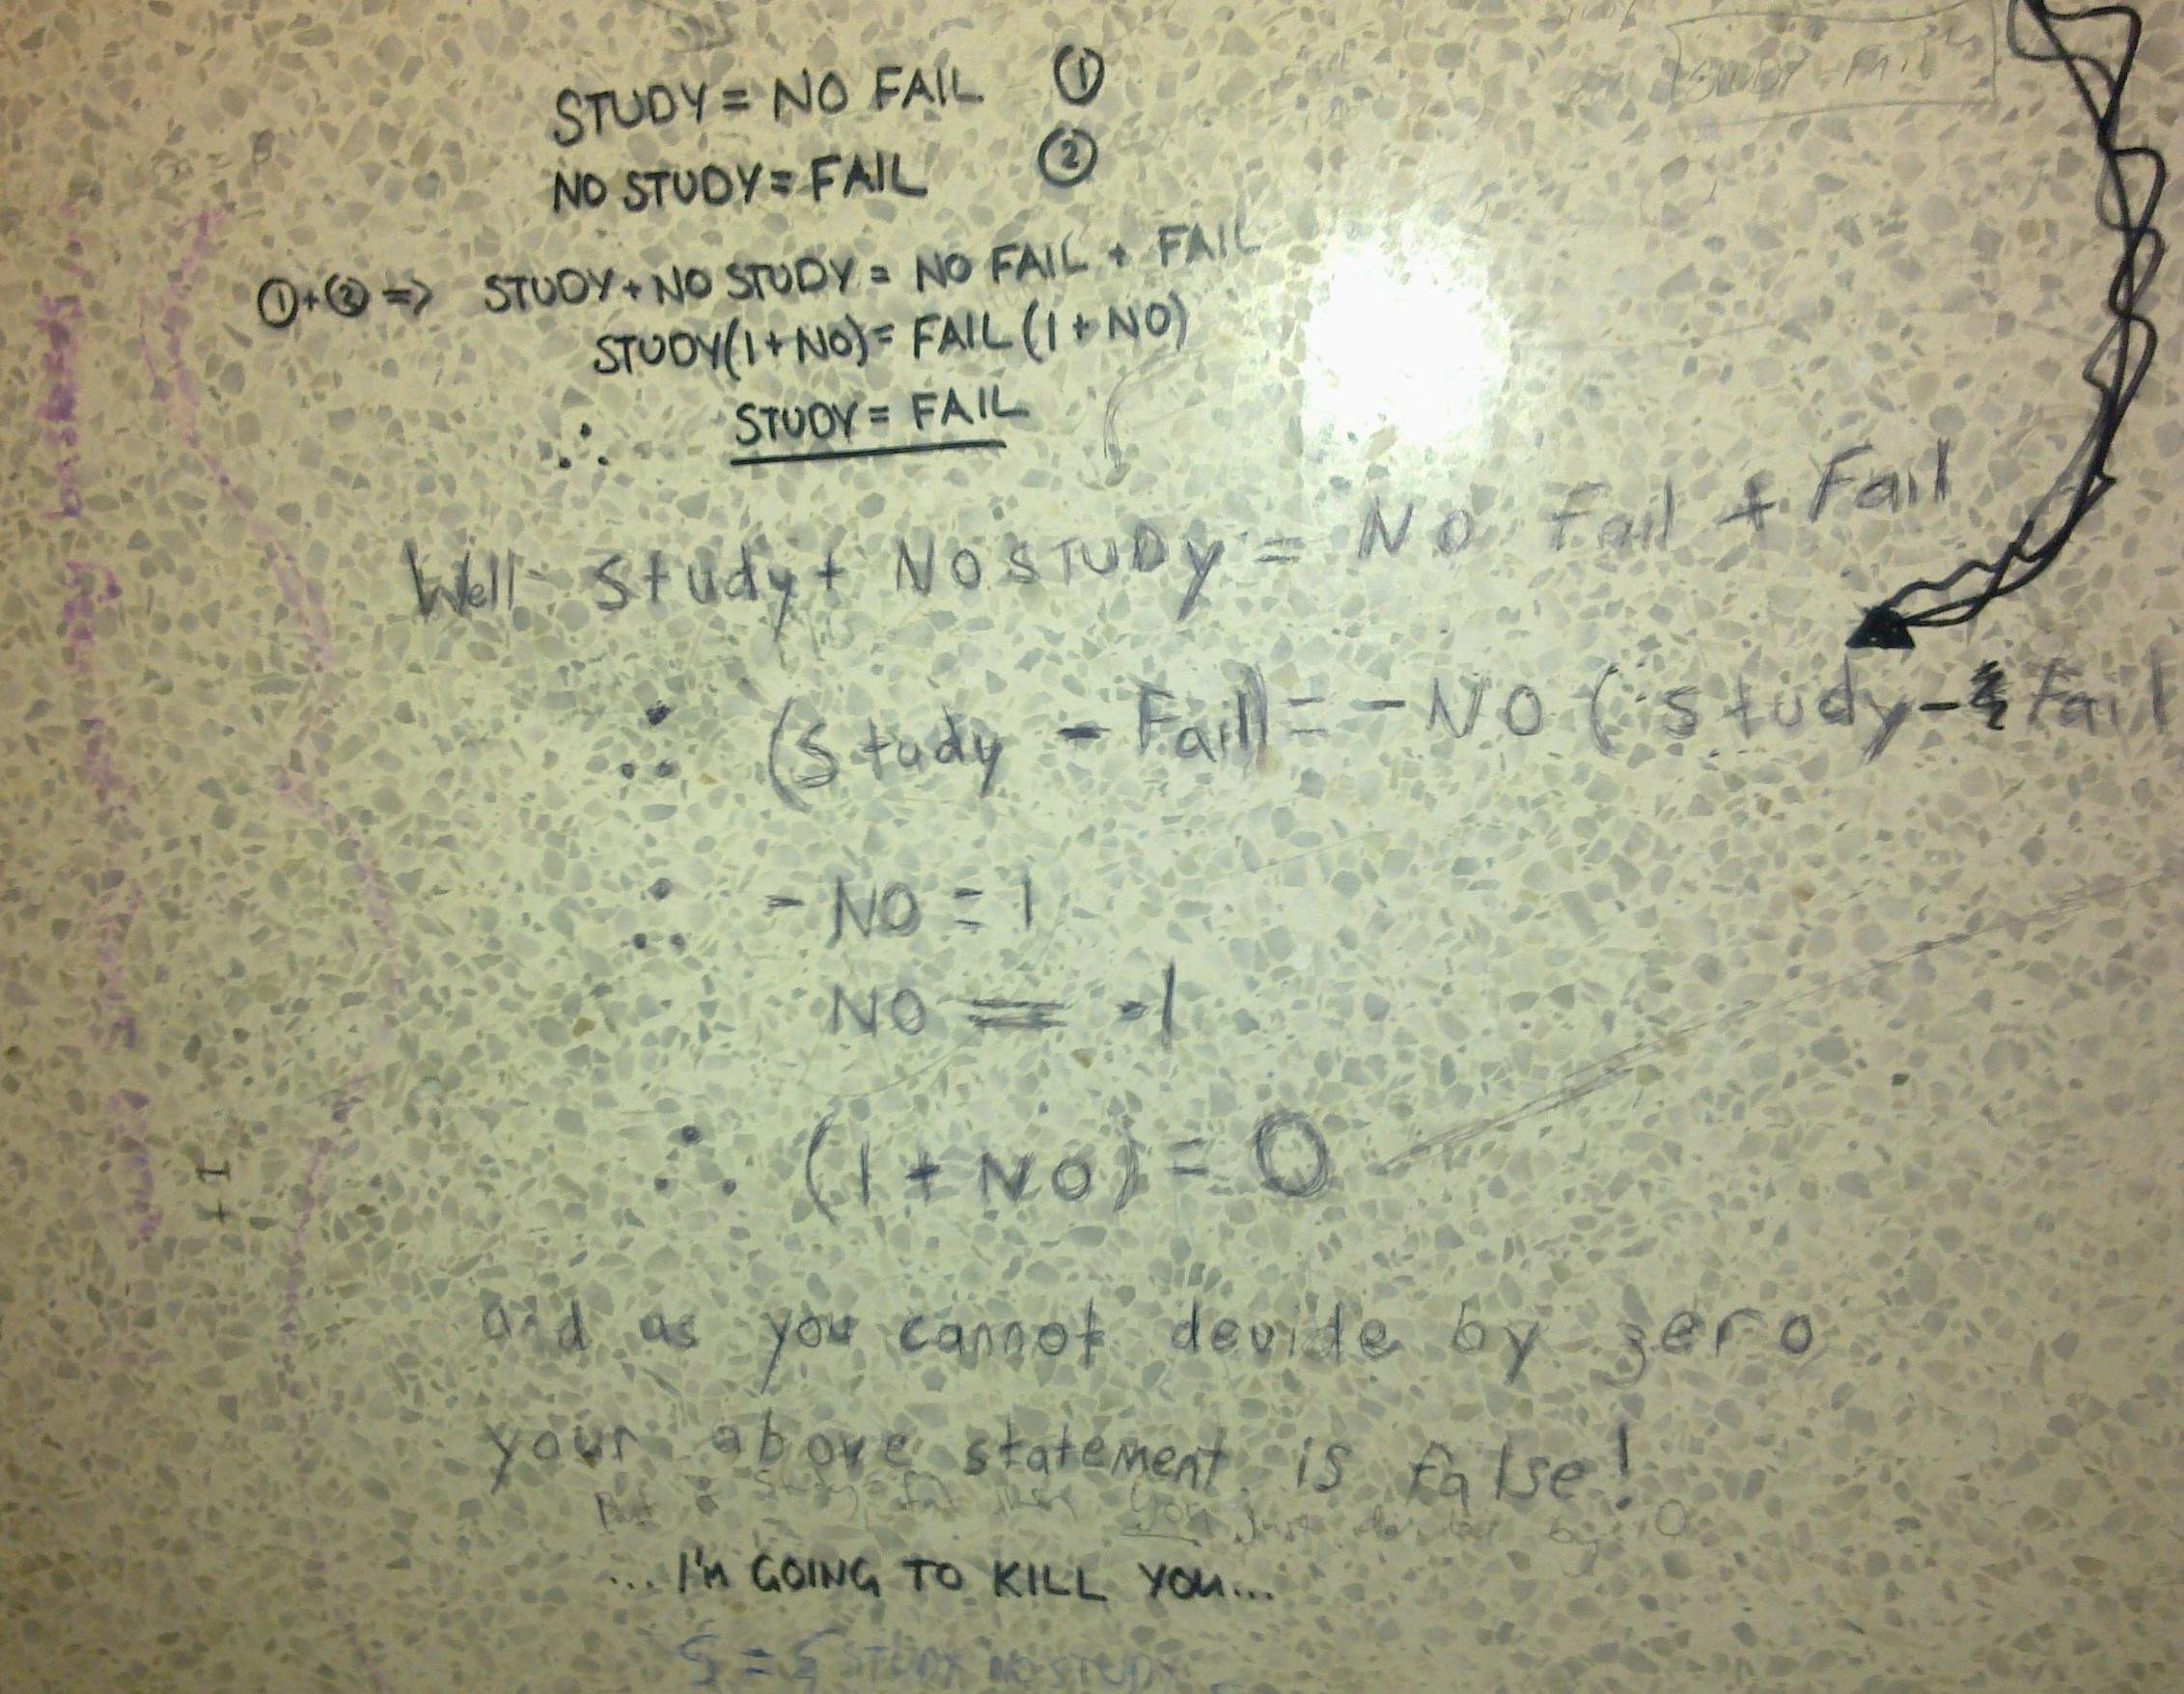 STUDY = NO FAIL ①
NO STUDY = FAIL ②
①+② => STUDY + NO STUDY = NO FAIL + FAIL
STUDY(1+NO) = FAIL (1+NO)
∴ STUDY = FAIL
Well study + NO STUDY = NO Fail + Fail
∴ (study - Fail) = -NO (study - fail
∴ -NO = 1
NO = -1
∴ (1 + NO) = 0
and as you cannot devide by zero
your above statement is false!
But study = fail you just by 0
... I'm GOING TO KILL YOU...
S = { STUDY NO STUDY
+1